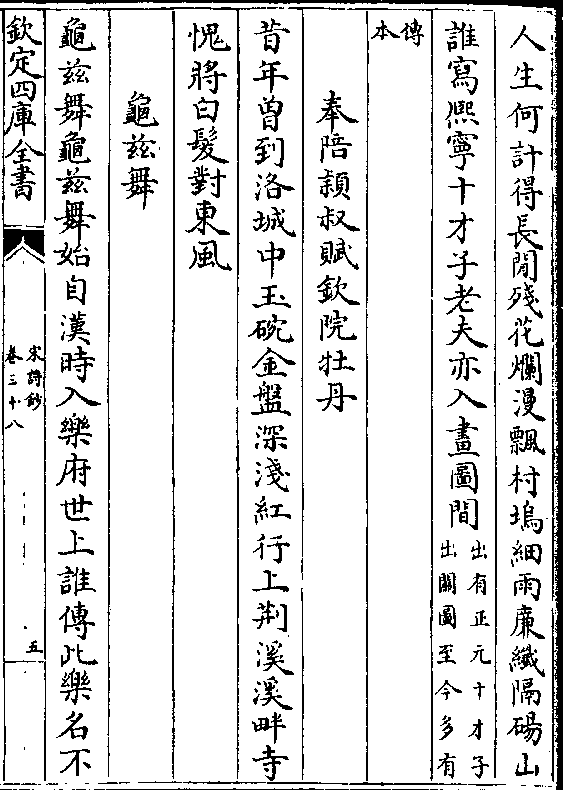 人生何計得長閒殘花爛漫飄村塢細雨廉纖隔碭山
誰寫熈寧十才子老夫亦入畫圖間出有正元十才子出關圖至今多有
傳本
奉陪頴叔賦欽院牡丹
昔年曽到洛城中玉碗金盤深淺紅行上荆溪溪畔寺
愧將白髮對東風
龜兹舞
龜兹舞龜兹舞始自漢時入樂府世上誰傳此樂名不
欽定四庫全書
宋詩鈔
卷三十八
五